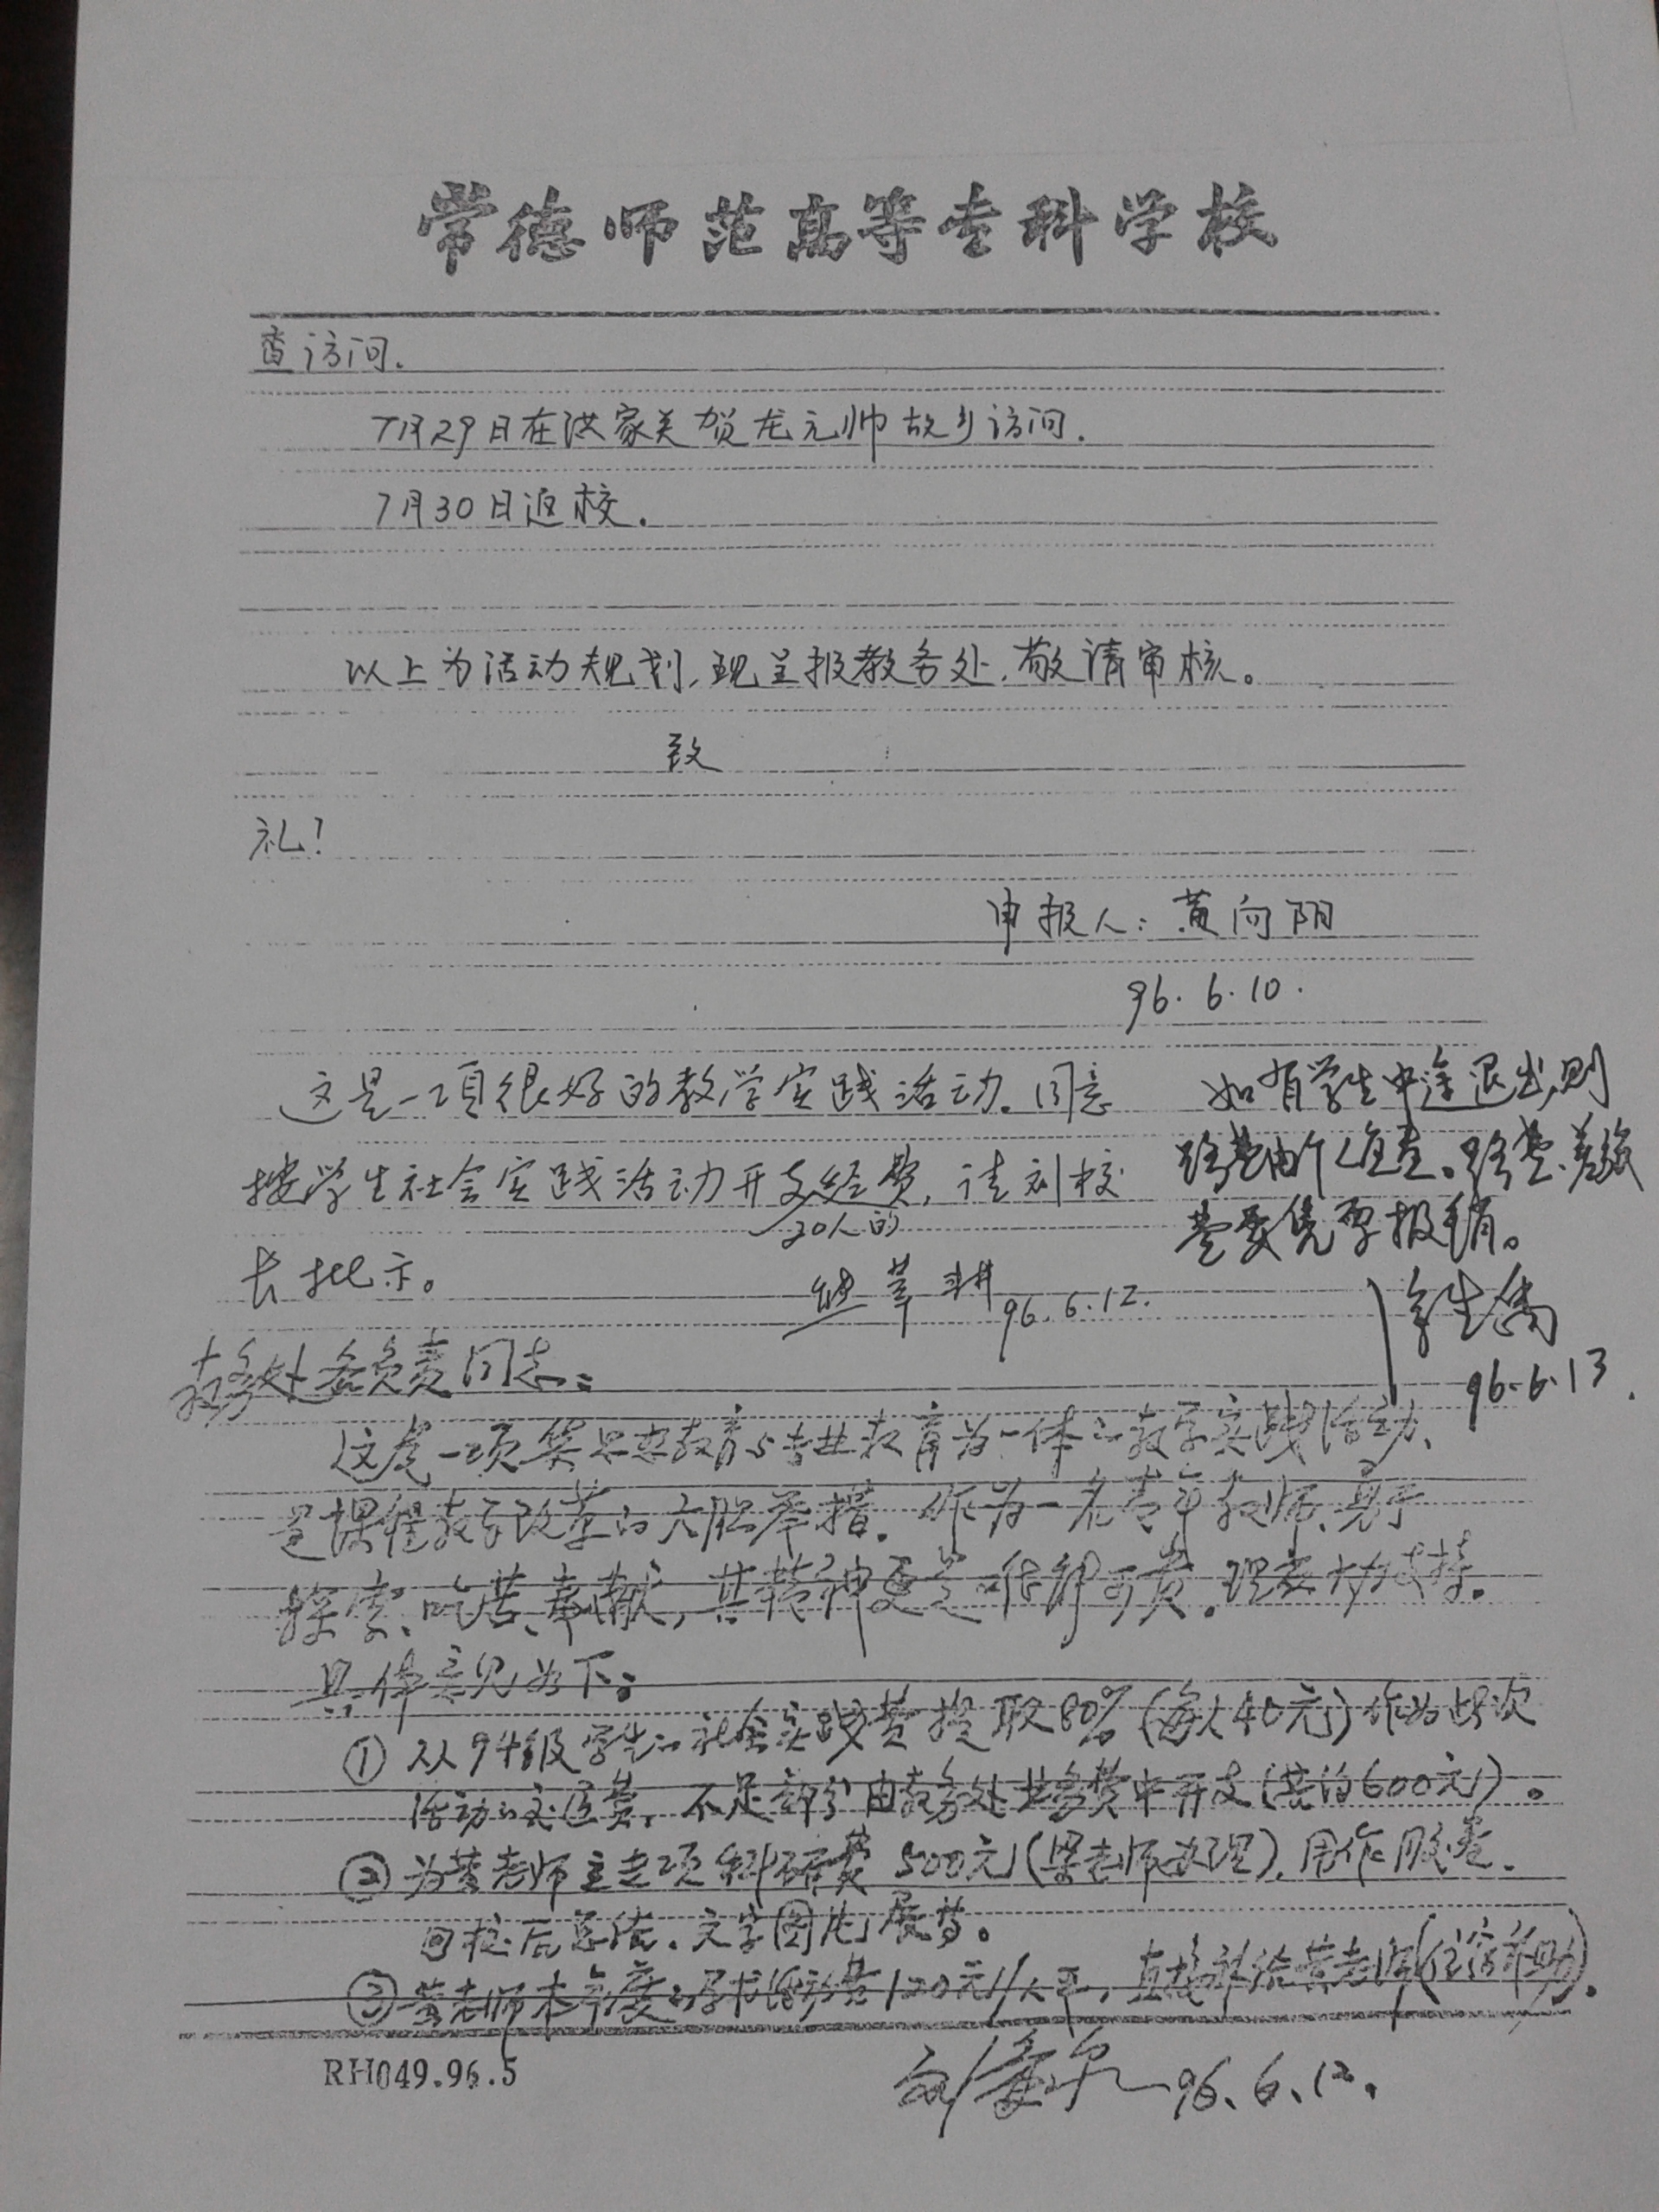 常德师范高等专科学校
查访问.
7月29日在洪家关贺龙元帅故乡访问.
7月30日返校.
以上为活动规划,现呈报教务处,敬请审核。
致
礼!
申报人:黄向阳
96.6.10.
这是一项很好的教学实践活动。同意
按学生社会实践活动开支经费,请刘校
30人的
长批示。
96.6.12.
如有学生中途退出,则
路费由个人负责。路费、差旅
费要凭票报销。
96.6.13.
教务处各负责同志:
这是一项集思想教育与专业教育为一体的教学实践活动、
是课程教学改革的大胆举措。作为一名青年教师、勇于
探索、吃苦、奉献,其精神更是难能可贵。理应大力支持。
具体意见如下:
①从94级学生的社会实践费提取80%(每人40元)作为此次
活动的交通费,不足部分由教务处业务费中开支(共约600元)。
②为黄老师立专项科研费500元(梁老师办理),用作胶卷、
回校后总结、文字图片展等。
③黄老师本年度的学术活动费120元/人年,直接补给黄老师(住宿补助)。
96.6.12.
RH049.96.5